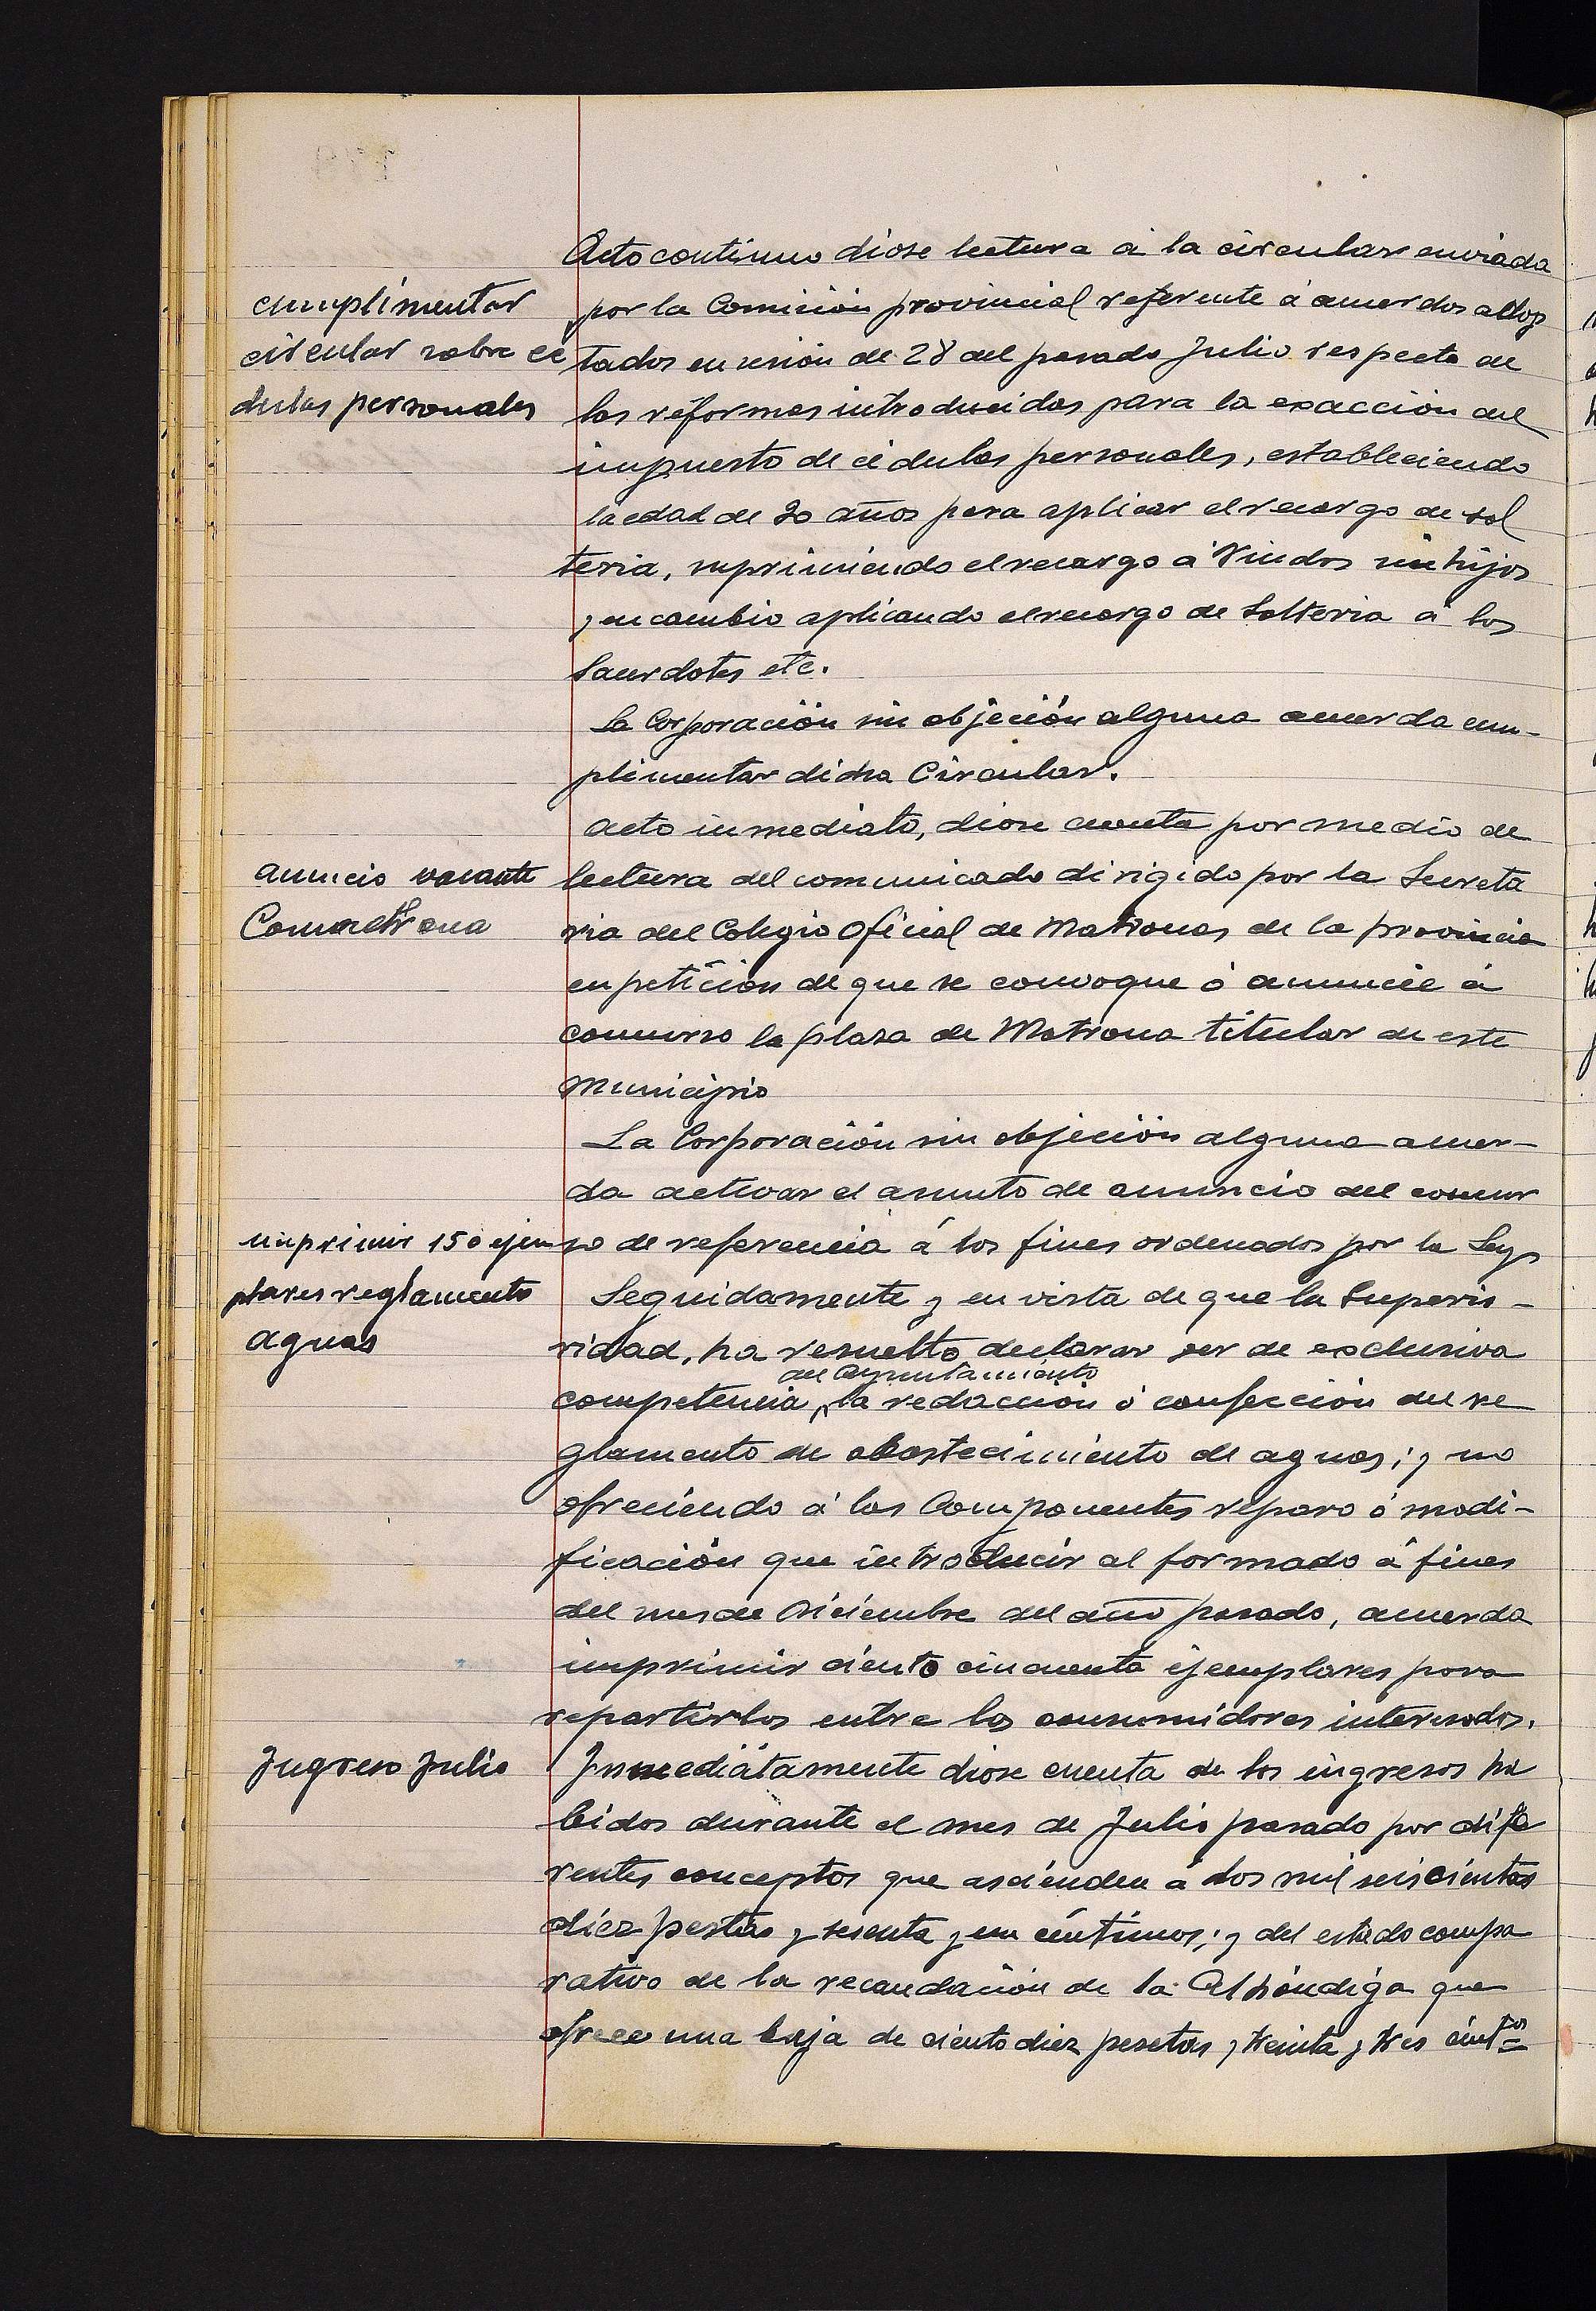 Acto continuo diose lectura á la circular enviada
cumplimentar
circular sobre cé
dulas personales
por la Comisión provincial referente á acuerdos adop
tados en sesión de 28 del pasado Julio respecto de
las reformas introducidas para la exacción del
impuesto de cédulas personales, estableciendo
la edad de 30 años para aplicar el recargo de sol
teria, suprimiendo el recargo á Viudos sin hijos
y en cambio aplicando el recargo de Solteria á los
Sacerdotes etc.
La Corporación sin objeción alguna acuerda cum-
plimentar dicha Circular.
Acto inmediato, diose cuenta por medio de
anuncio vacante
Comadrona
lectura del comunicado dirigido por la Secreta
ria del Colegio Oficial de Matronas de la provincia
en petición de que se convoque ó anuncie á
concurso la plaza de Matrona titular de este
Municipio
La Corporación sin objeción alguna acuer-
da activar el asunto de anuncio del concur
imprimir 150 ejem
plares reglamento
aguas
so de referencia á los fines ordenados por la Ley
Seguidamente y en vista de que la Superio-
ridad, ha resuelto declarar ser de exclusiva
del Ayuntamiento
competencia, la redacción ó confección del re
glamento de abastecimiento de aguas; y no
ofreciendo á los Componentes reparo ó modi-
ficación que introducir al formado á fines
del mes de Diciembre del año pasado, acuerda
imprimir ciento cincuenta ejemplares para
repartirlos entre los consumidores interesados.
Ingreso Julio
Inmediatamente diose cuenta de los ingresos ha
bidos durante el mes de Julio pasado por dife
rentes conceptos que ascienden á dos mil seiscientas
diez pestas y sesenta y un céntimos; y del estado compa
rativo de la recaudación de la Alhóndiga que
ofrece una baja de ciento diez pesetas y treinta y tres cént.os